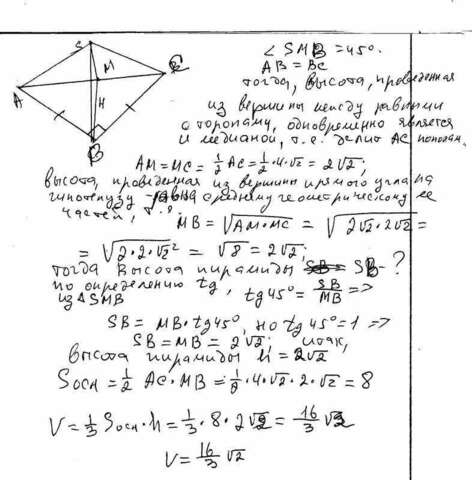 S
M
A
C
H
B
∠ SMB = 45°.
AB = BC
тогда, высота, проведенная
из вершины между равными
сторонами, одновременно является
и медианой, т.е. делит AC пополам.
AM = MC = 1/2 AC = 1/2 · 4 · √2 = 2√2;
высота, проведенная из вершины прямого угла на
гипотенузу равна среднему геометрическому ее
частей, т.е.
MB = √(AM · MC) = √(2√2 · 2√2) =
= √(2 · 2 · √2²) = √8 = 2√2;
тогда высота пирамиды SB - ?
по определению tg,
из △SMB
tg45° = SB/MB =>
SB = MB · tg45°, но tg45° = 1 =>
SB = MB = 2√2; итак,
высота пирамиды h = 2√2
Sосн = 1/2 AC · MB = 1/2 · 4 · √2 · 2 · √2 = 8
V = 1/3 Sосн · h = 1/3 · 8 · 2√2 = 16/3 √2
V = 16/3 √2